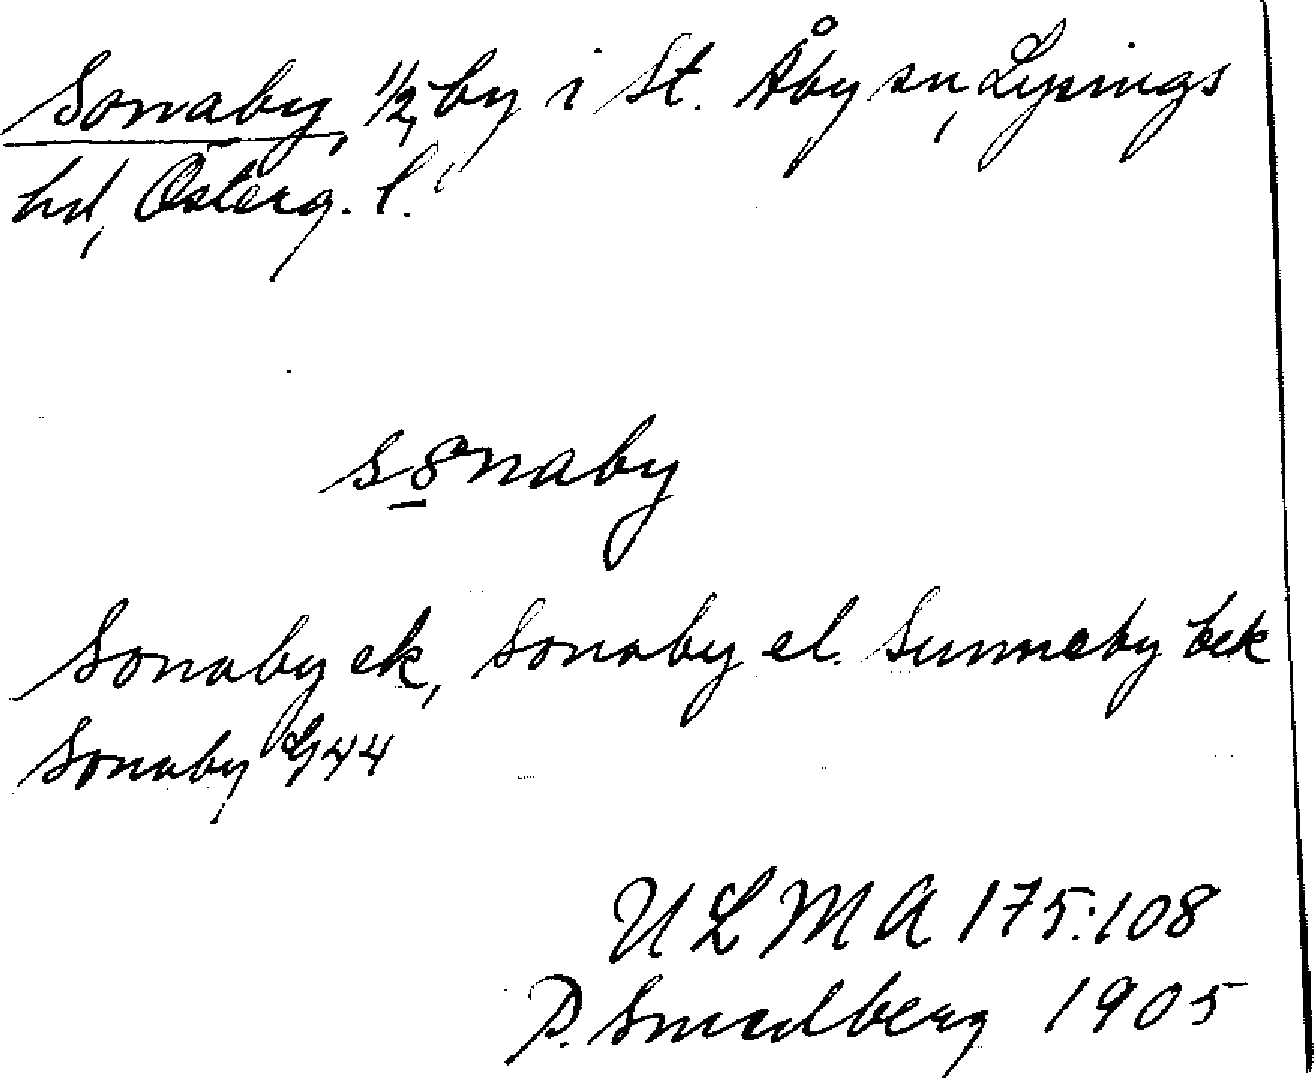 Sonaby, 1/2, by i St. Åby sn, Lysings
hd, Österg. l.
sȣnaby
Sonaby ek, Sonaby el. Sunneby bek
Sonaby 44
ULMA 175:108
P. Smedberg 1905